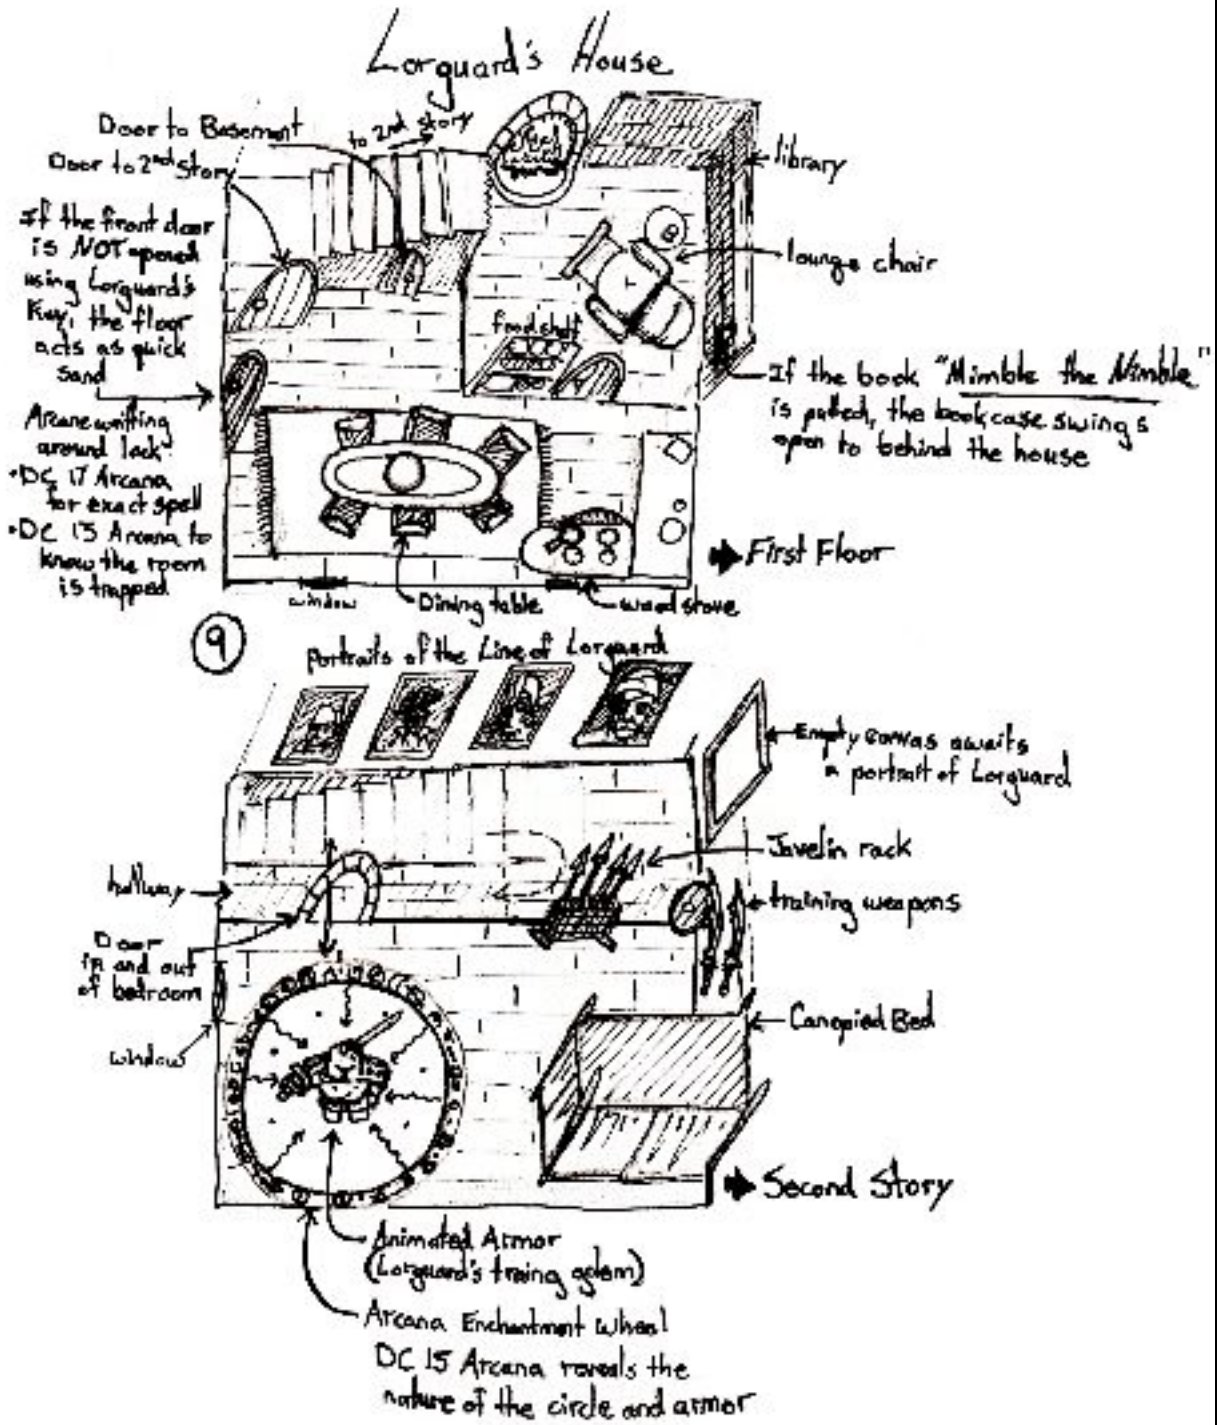 Lorguard's House
Door to Basement
to 2nd story
Door to 2nd Story
library
If the front door
is NOT opened
using Lorguard's
Key, the floor
acts as quick
sand
lounge chair
food shelf
If the book "Mimble the Nimble"
is pulled, the bookcase swings
open to behind the house
Arcane writing
around lock
• DC 17 Arcana
for exact spell
• DC 15 Arcana to
know the room
is trapped
First Floor
window
Dining table
wood stove
9
Portraits of the Line of Lorguard
Empty canvas awaits
a portrait of Lorguard
Javelin rack
hallway
training weapons
Door
in and out
of bedroom
Canopied Bed
window
Second Story
Animated Armor
(Lorguard's traing golem)
Arcana Enchantment wheel
DC 15 Arcana reveals the
nature of the circle and armor